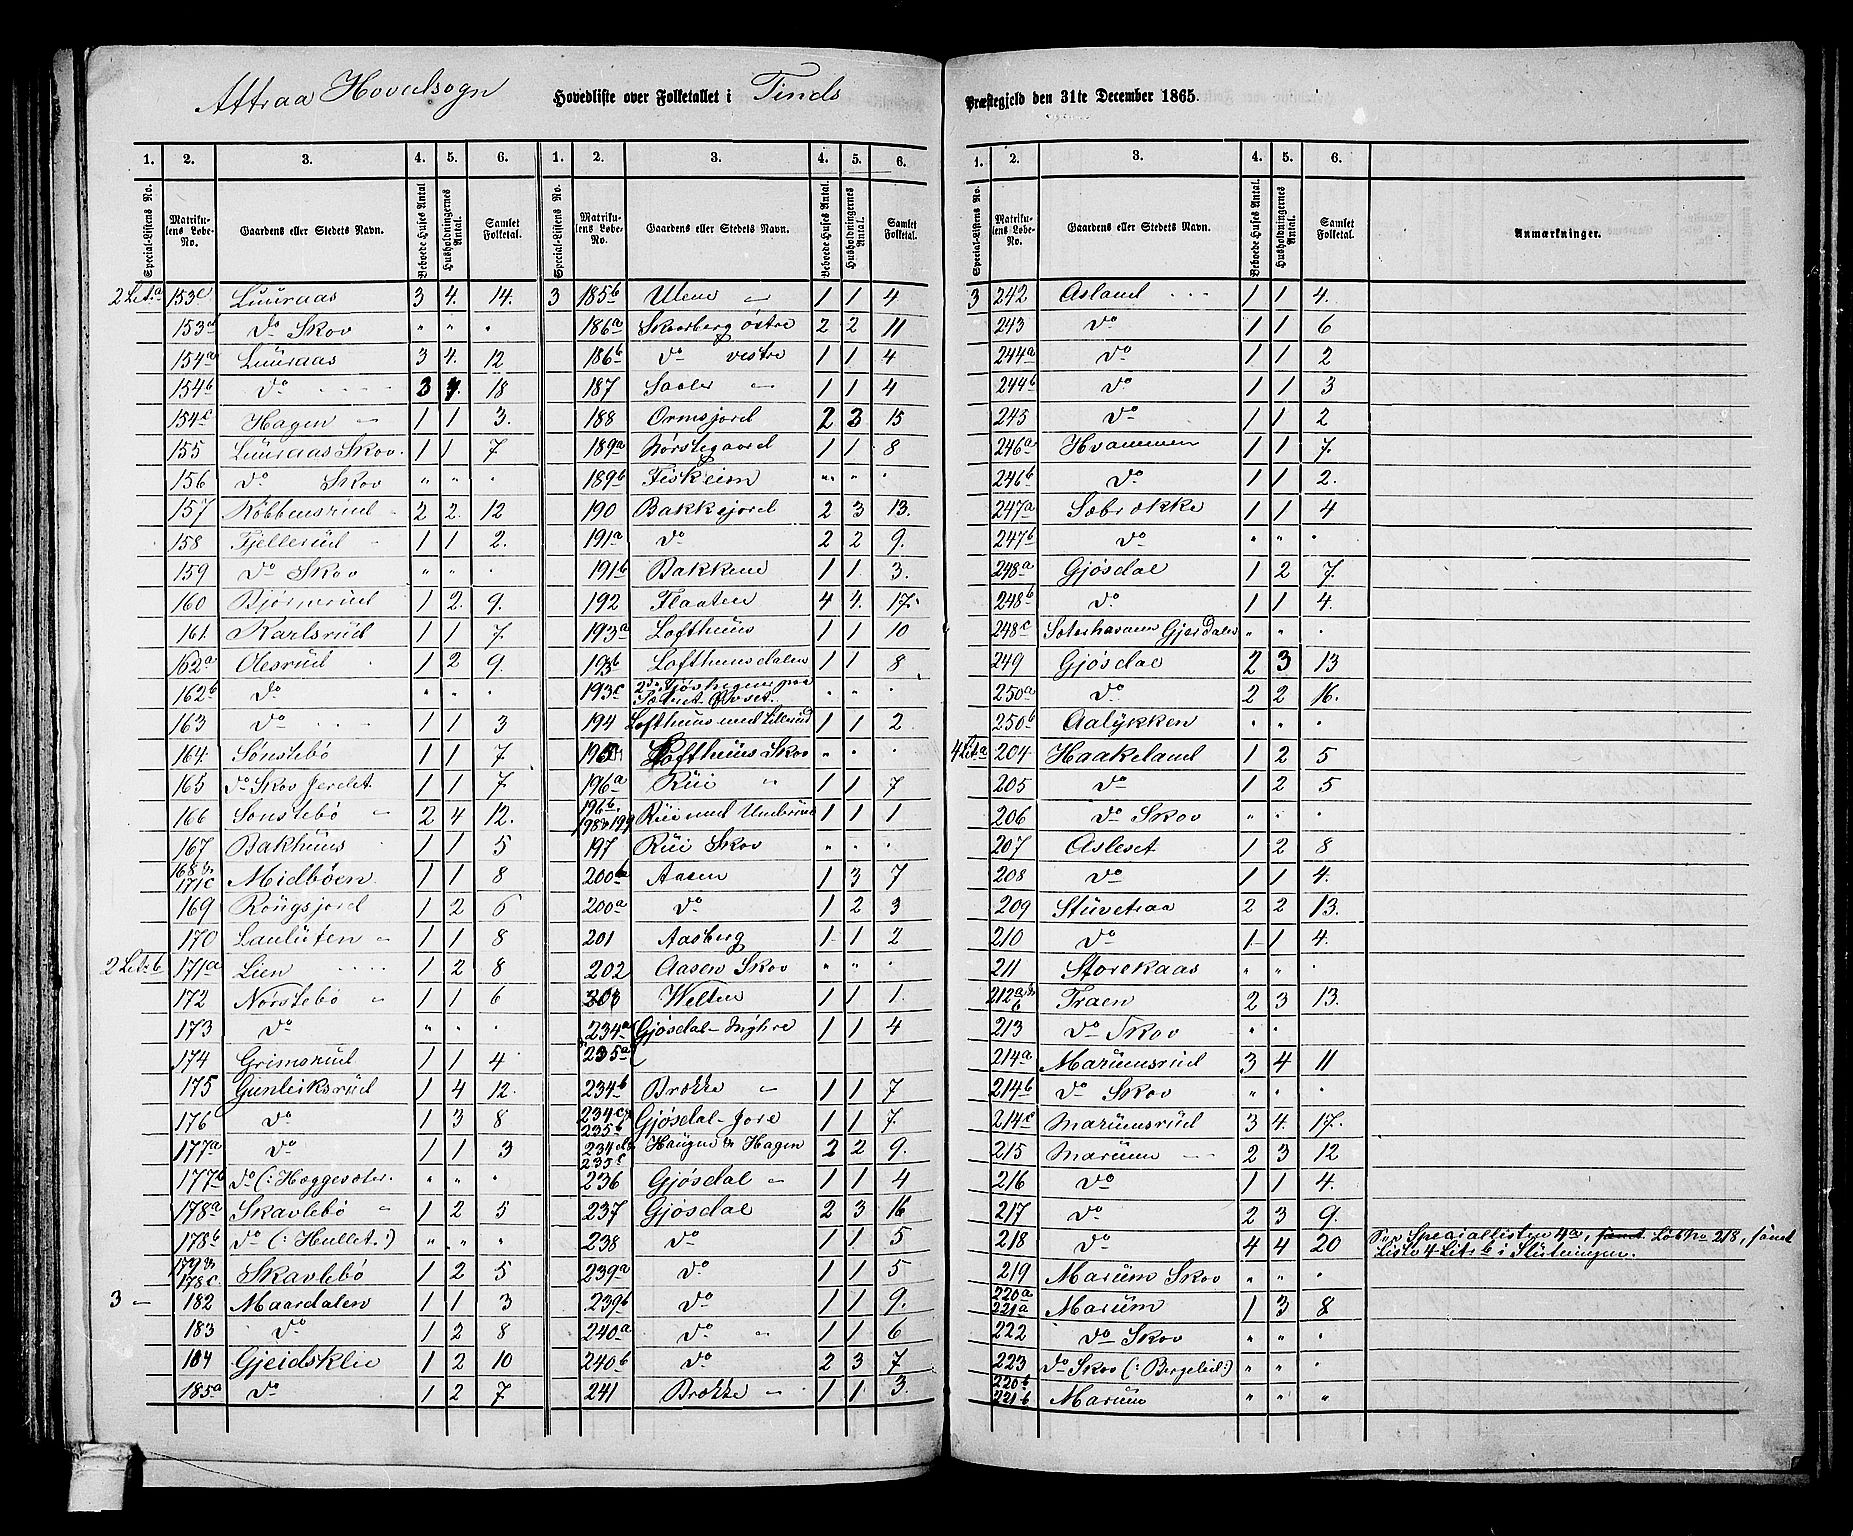 Attraa Hovedsogn Hovedliste over Folketallet i Tinds Præstegjeld den 31te December 1865.
1. 2. 3. 4. 5. 6. 1. 2. 3. 4. 5. 6.
Special-Listens No. Matrikulens Løbe-No. Gaardens eller Stedets Navn. Beboede Huses Antal. Husholdningernes Antal. Samlet Folketal. Special-Listens No. Matrikulens Løbe-No. Gaardens eller Stedets Navn. Beboede Huses Antal. Husholdningernes Antal. Samlet Folketal.
2 Lit. a 153c Luuraas 3 4. 14. 3 185b Ulene " 1 1 4
153d Do Skov " " " 186a Skaarberg østre 2 2 11
154a Luuraas 3 4. 12 186b Do vestre 1 1 4
154b Do 3 4. 18 187 Saaler " 1 1 4
154c Hagen " 1 1 3. 188 Ormsjord 2 3 15
155 Luuraas Skov. 1 1 7 189a Nørstegaard 1 1 8
156 Do Skov " " " 189b Fiskeim " " "
157 Købbensrud 2 2. 12 190 Bakkejord 2 3 13.
158 Fjellerud 1 1 2. 191a Do 2 2 9.
159 Do Skov " " " 191b Bakkene 1 1 3.
160 Bjørnerud 1 2. 9. 192 Flaaten 4 4. 17.
161. Karlsrud 1 1 7. 193a Lofthuus 1 1 10
162a Olesrud 1 2 9. 193b Lofthuusdalen 1 1 8
162b Do " " " 193c " " "
163 Do 1 1 3 194 Lofthuus med Lillerud 1 1 2.
164. Sønstebø 1 1 7 195 Lofthuus Skov " " "
165 Do Skov Jerdet 1 1 7. 196a Rui " 1 1 7
166 Sønstebø " 2 4 12. 196b. 198 & 199 Rui med Underrud 1 1 1
167 Bakhuus 1 1 5 197 Rui Skov " " "
168 & 171c Midbøen 1 1 8 200b Aasen 1 3 7
169 Røugsjord 1 2 6 200a Do 1 2 3
170 Lauluten " 1 1 8 201 Aasberg 1 1 2
2 Lit. b 171a Lien 1 2 8 202 Aasen Skov " " "
172 Nørstebø " 1 1 6 203 Welten 1 1 1.
173 Do " " " 234a Gjøsdal-Nyhre 1 1 4
174 Grimsrud 1 1 4 235a
175 Gunleiksrud 1 4 12. 234b Brække " 1 1 7
176 Do 1 3 8 234c & 235b Gjøsdal-Jore 1 1 7.
177a Do 1 1 3 234d & 235c Haugen & Hagen 2 2 9.
177b Do (: Hæggesæter. " " " 236 Gjøsdal " 1 1 4
178a Skavlebø " 1 2 5 237 Gjøsdal 2 3 16
178b Do (: Hullet :) " " " 238 Do 1 1 5
179 & 178c Skavlebø 1 2 5 239a Do 1 1 5
3 - 182 Maardalen 1 1 3 239b Do 1 1 9.
183 Do 1 2 8 240a Do " 1 1 6
184 Gjeidsklie 1 2 10 240b Do 2 3 7
185a Do 1 2 7 241 Brække " 1 1 3.
1. 2. 3. 4. 5. 6.
Special-Listens No. Matrikulens Løbe-No. Gaardens eller Stedets Navn. Beboede Huses Antal. Husholdningernes Antal. Samlet Folketal. Anmærkninger.
3 242 Asland 1 1 4.
243 Do 1 1 6
244a Do 1 1 2
244b Do 1 1 3
245 Do 1 1 2
246a Hvammen 1 1 7.
246b Do 1 1 2.
247a Sæbrække 1 1 4
247b Do " " "
248a Gjøsdal 1 2 7.
248b Do 1 1 4.
248c " " "
249 Gjøsdal 2 3 13
250a Do 2 2 16.
250b Aalykken " " "
4 Lit a 204 Haakeland 1 2 5
205 Do 1 2 5
206 Do Skov " " "
207 Asleset 1 2 8
208 Do 1 1 4.
209 Stuvetraa 2 2 13.
210 Do 1 1 4.
211 Storekaas " " "
212a & b Traen 2 3 13.
213 Do Skov " "
214a Marumsrud 3 4 11
214b Do Skov " " "
214c Marumsrud 3 4. 17.
215 Marum 2 3 12
216 Do 1 1 4.
217 Do 2 3 9.
218 Do 4 4 20 Speciallisten 4a, samt Løb No 218, samt
Liste 4 Lit. b i Slutningen.
219 Marum Skov " " "
220a 221a Marum 1 3 8
222 Do Skov " " "
223 Do Skov (: Bergelid :) " " "
220b 221b Marum " " "